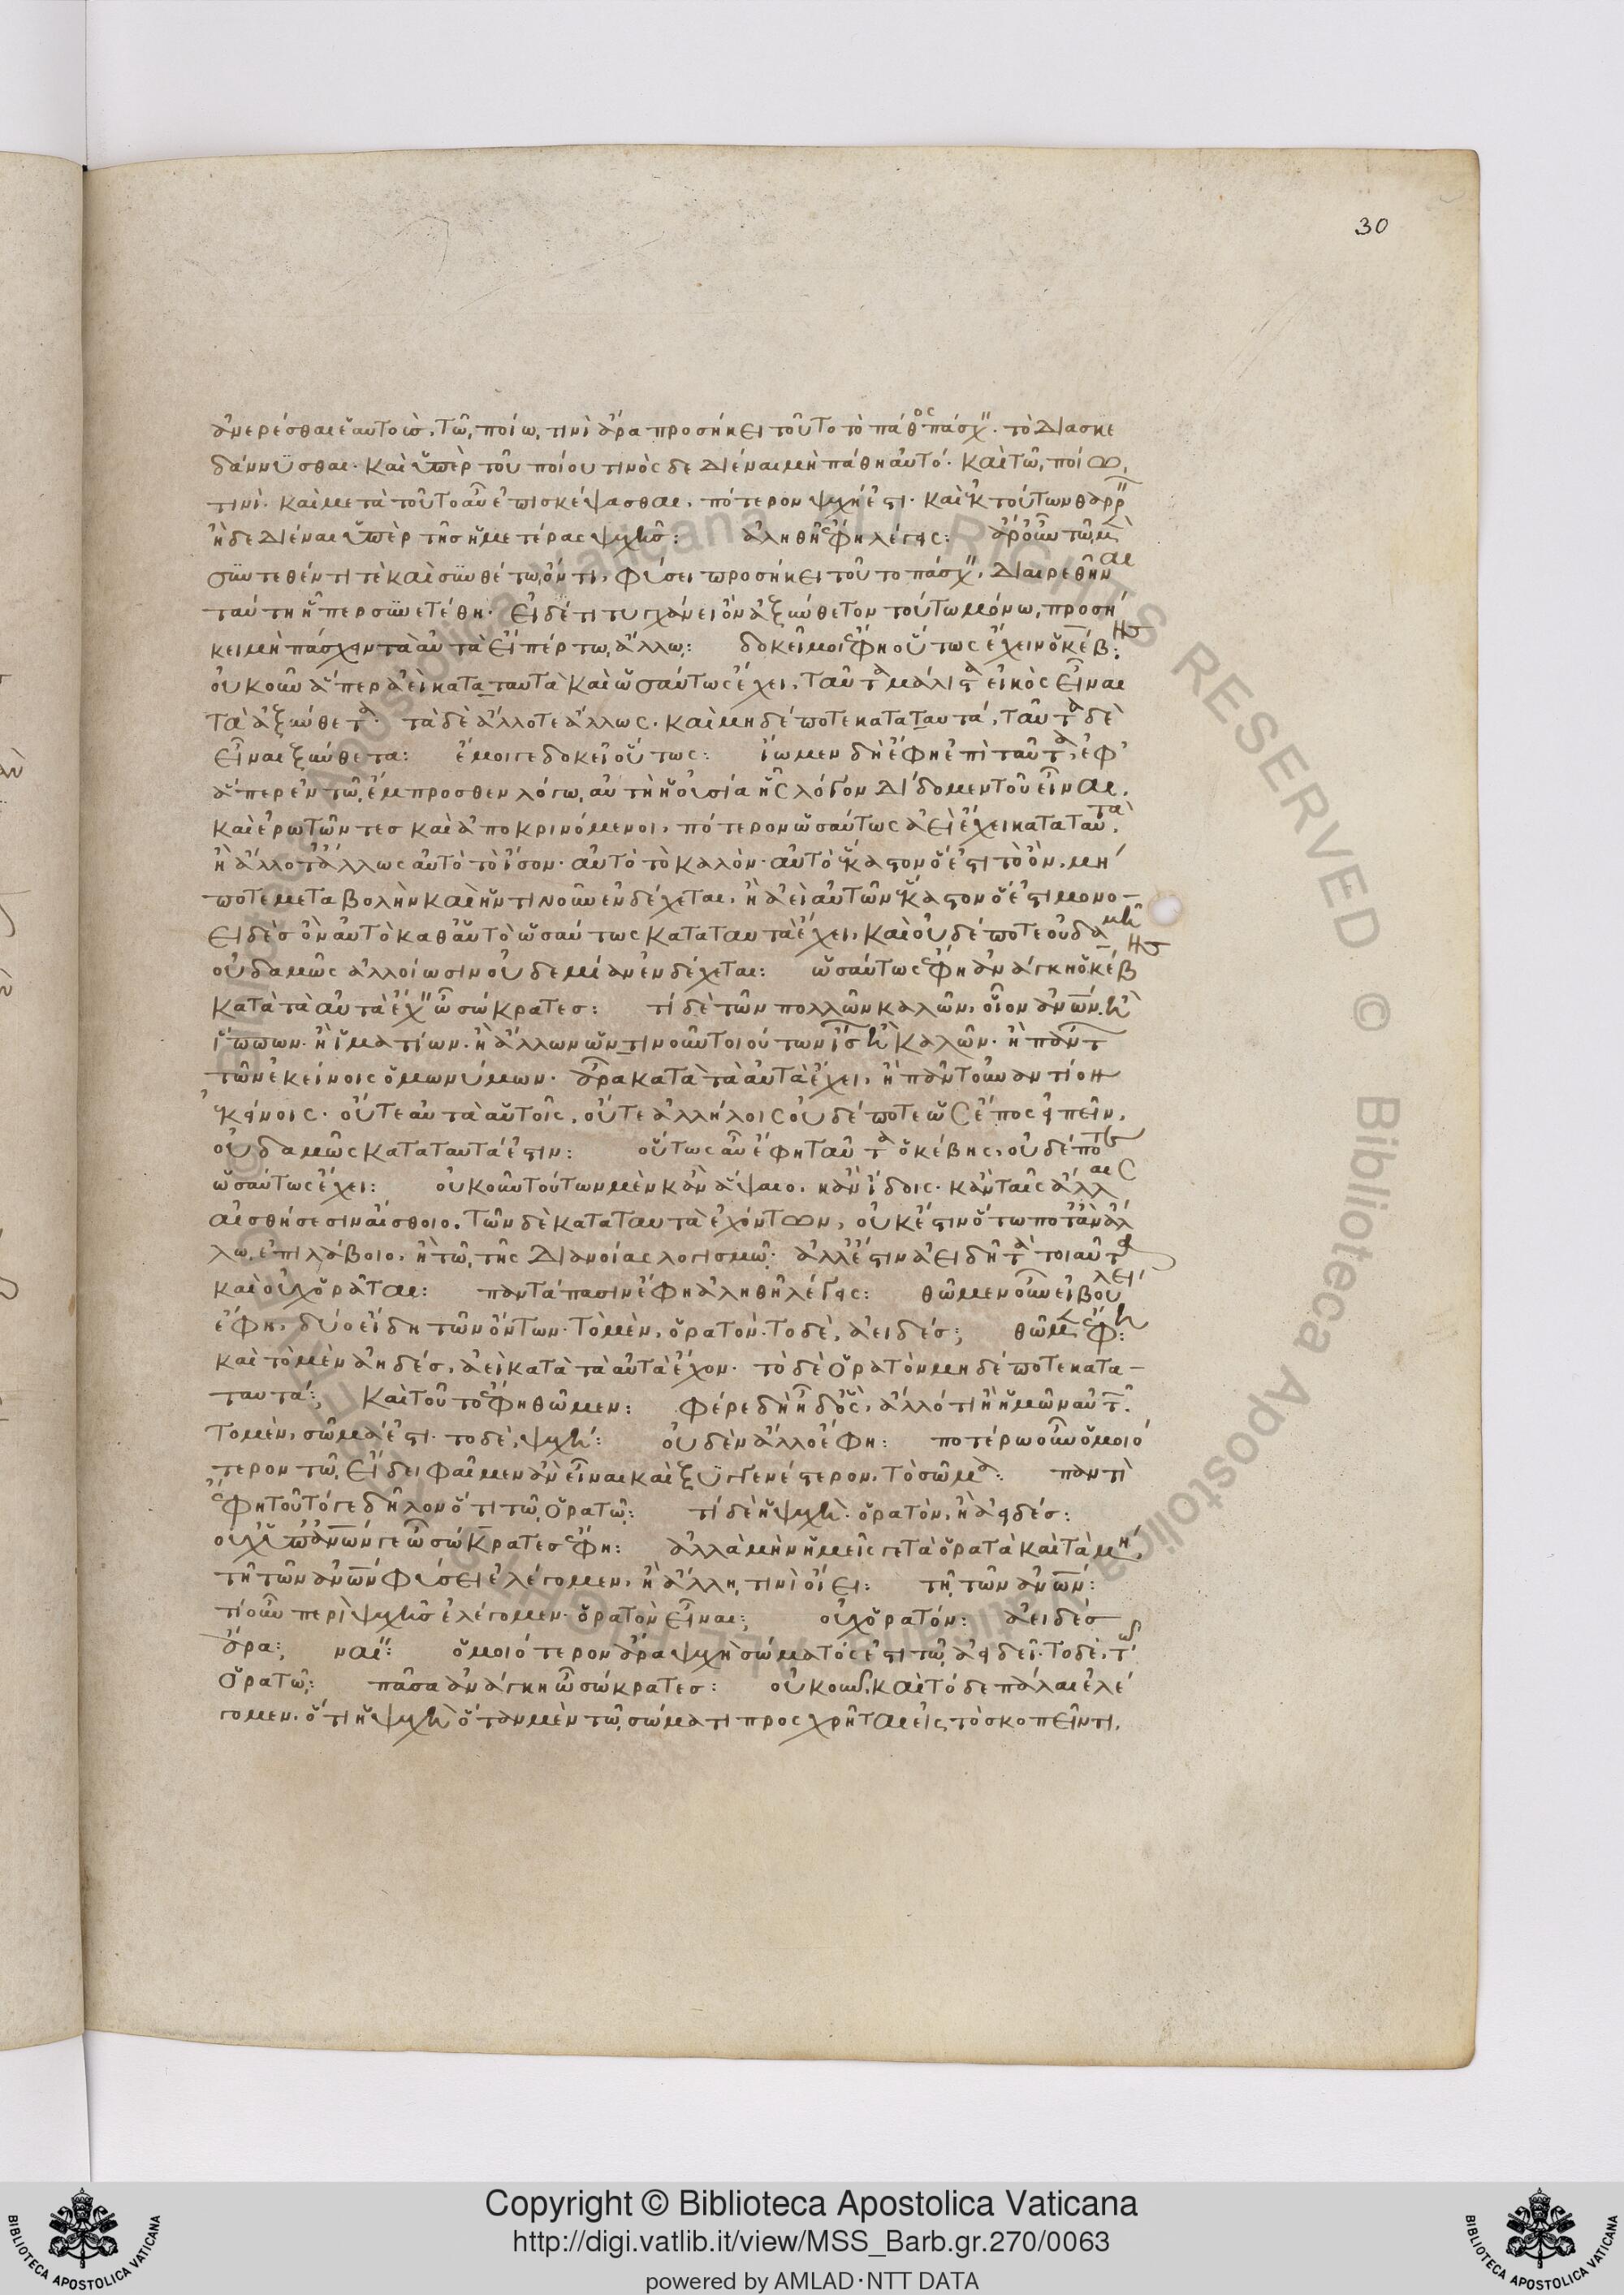 30
ἀνερέσθαι ἑαυτοὺς. τῶ, ποίω, τινὶ ἄρα προσήκει τοῦτο τὸ πάθος πάσχειν. τὸ διασκε
δάννυσθαι. καὶ ὑπὲρ τοῦ ποίου τινὸς δεδιέναι μὴ πάθη αὐτό. καὶ τῶ, ποίω,
τινί. καὶ μετὰ τοῦτο αὖ ἐπισκέψασθαι, πότερον ψυχή ἐστι. καὶ ἐκ τούτων θαρρεῖν
ἢ δεδιέναι ὑπὲρ τῆς ἡμετέρας ψυχῆς: ἀληθῆ ἔφη λέγεις: ἆρ' οὖν τῶ μὲν
συντεθέντι τὲ καὶ συνθέτω ὄντι, φύσει προσήκει τοῦτο πάσχειν, διαιρεθῆναι
ταύτη ἧπερ συνετέθη. εἰ δέ τι τυγχάνει ὂν ἀξύνθετον τούτω μόνω, προσή
κει μὴ πάσχειν ταῦτα εἴπέρ τω, ἄλλω: δοκεῖ μοι ἔφη οὕτως ἔχειν ὁ κέβης:
οὐκοῦν ἅπερ ἀεὶ κατα ταυτὰ καὶ ὡσαύτως ἔχει, ταῦτα μάλιστα εἰκὸς εἶναι
τὰ ἀξύνθετα. τὰ δὲ ἄλλοτε ἄλλως. καὶ μηδέποτε κατα ταυτά, ταῦτα δὲ
εἶναι ξύνθετα: ἔμοιγε δοκεῖ οὕτως: ἴωμεν δὴ ἔφη ἐπὶ ταῦτα, ἐφ'
ἅπερ ἐν τῶ, ἔμπροσθεν λόγω, αὐτὴ ἡ οὐσία ἧς λόγον δίδομεν τοῦ εἶναι,
καὶ ἐρωτῶντες καὶ ἀποκρινόμενοι, πότερον ὡσαύτως ἀεὶ ἔχει κατα ταυτὰ,
ἢ ἄλλοτ' ἄλλως αὐτὸ τὸ ἴσον. αὐτὸ τὸ καλὸν. αὐτὸ ἕκαστον ὃ ἔστι τὸ ὂν, μή
ποτε μεταβολὴν καὶ ἡντινοῦν ἐνδέχεται, ἢ ἀεὶ αὐτῶν ἕκαστον ὃ ἔστι μονο-
ειδὲς ὂν αὐτὸ καθ' αὑτὸ ὡσαύτως κατα ταυτὰ ἔχει, καὶ οὐδέποτε οὐδαμῆ
οὐδαμῶς ἀλλοίωσιν οὐδεμίαν ἐνδέχεται: ὡσαύτως ἔφη ἀνάγκη ὁ κέβης
κατὰ τὰ αὐτὰ ἔχειν ὦ σώκρατες: τί δὲ τῶν πολλῶν καλῶν, οἷον ἀνων. ἢ
ἵππων. ἢ ἱματίων. ἢ ἄλλων ὧντινοῦν τοιούτων ἴσων ἢ καλῶν. ἢ πάντων
τῶν ἐκείνοις ὁμωνύμων. ἆρα κατὰ τὰ αὐτὰ ἔχει, ἢ πᾶν τοὐναντίον
ἐκείνοις. οὔτε αὐτὰ αὑτοῖς, οὔτε ἀλλήλοις οὐδέποτε ὡς ἔπος εἰπεῖν,
οὐδαμῶς κατα ταυτά ἐστιν: οὕτως αὖ ἔφη ταῦτα ὁ κέβης, οὐδέποτε
ὡσαύτως ἔχει: οὐκοῦν τούτων μὲν κἂν ἅψαιο, κἂν ἴδοις. κἂν ταῖς ἄλλαις
αἰσθήσεσιν αἴσθοιο. τῶν δὲ κατα ταυτὰ ἐχόντων, οὐκ ἔστιν ὅτω ποτ' ἂν ἄλ
λω, ἐπιλάβοιο, ἢ τῶ, τῆς διανοίας λογισμῶ. ἀλλ' ἔστιν ἀειδῆ τὰ τοιαῦτα
καὶ οὐχ ὁρᾶται: παντάπασιν ἔφη ἀληθῆ λέγεις: θῶμεν οὖν εἰ βούλει,
ἔφη, δύο εἴδη τῶν ὄντων. τὸ μὲν, ὁρατόν. τὸ δὲ, ἀειδές; θῶμεν ἔφη:
καὶ τὸ μὲν ἀειδές, ἀεὶ κατὰ τὰ αὐτὰ ἔχον. τὸ δὲ ὁρατὸν μηδέποτε κατα-
ταυτά; καὶ τοῦτο ἔφη θῶμεν: φέρε δὴ ἦ δ' ὅς, ἄλλό τι ἢ ἡμῶν αὐτῶν
τὸ μὲν, σῶμά ἐστι. τὸ δὲ, ψυχή: οὐδὲν ἄλλο ἔφη: ποτέρω οὖν ὁμοιό
τερον τῶ, εἴδει φαῖμεν ἂν εἶναι καὶ ξυγγενέστερον, τὸ σῶμα: παντὶ
ἔφη τοῦτό γε δῆλον ὅτι τῶ, ὁρατῶ: τί δὲ ἡ ψυχὴ. ὁρατὸν, ἢ ἀειδές:
οὐχ ὑπ' ἀνων γε ὦ σώκρατες ἔφη: ἀλλὰ μὴν ἡμεῖς γε τὰ ὁρατὰ καὶ τὰ μή,
τῆ τῶν ἀνων φύσει ἐλέγομεν, ἢ ἄλλη, τινὶ οἴει: τῆ, τῶν ἀνων:
τί οὖν περὶ ψυχῆς ἐλέγομεν. ὁρατὸν εἶναι; οὐχ ὁρατόν: ἀειδές
ἄρα; ναί: ὁμοιότερον ἄρα ψυχὴ σώματός ἐστι τῶ, ἀειδεῖ. τὸ δὲ, τῶ
ὁρατῶ; πᾶσα ἀνάγκη ὦ σώκρατες: οὐκοῦν, καὶ τόδε πάλαι ἐλέ
γομεν, ὅτι ἡ ψυχὴ ὅταν μὲν τῶ, σώματι προσχρῆται εἰς τὸ σκοπεῖν τι,
Copyright © Biblioteca Apostolica Vaticana
http://digi.vatlib.it/view/MSS_Barb.gr.270/0063
powered by AMLAD·NTT DATA